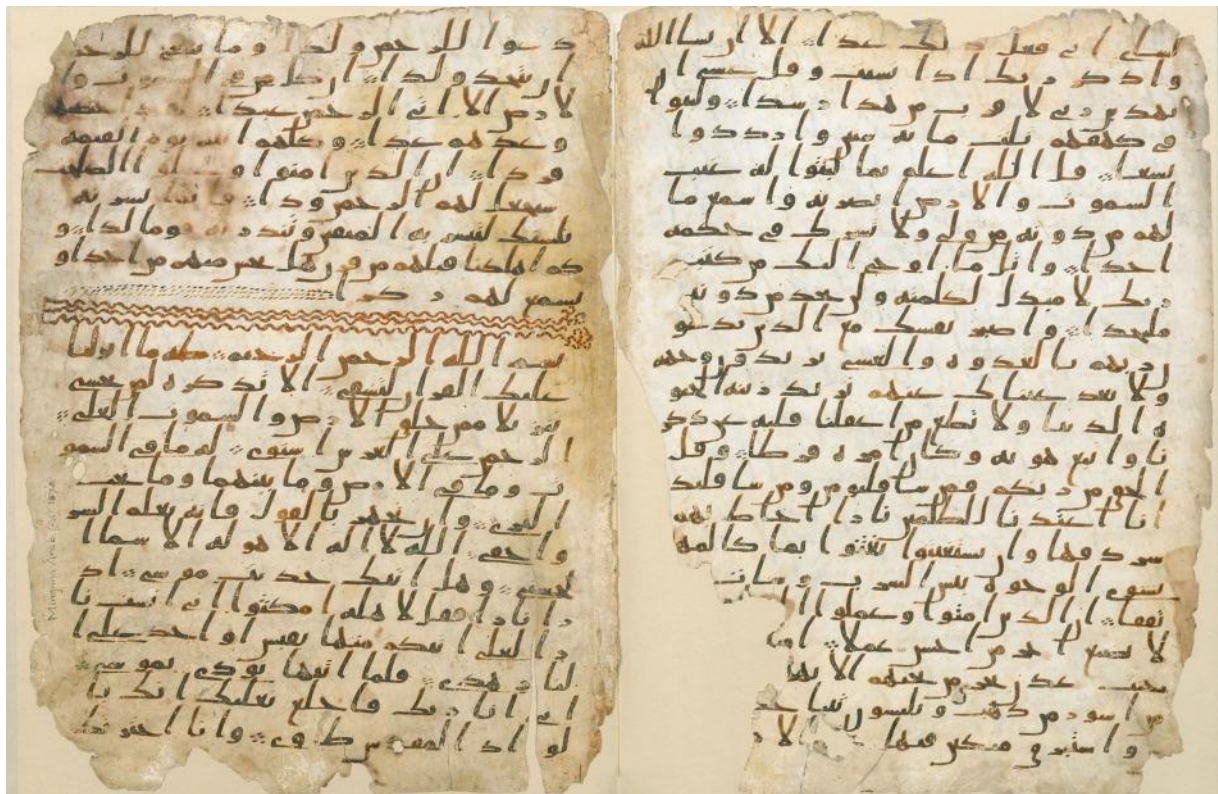 لشاى انى فعل ذلك غدا الا ان يشا الله
واذكر ربك اذا نسيت وقل عسى ان
يهدين ربى لاقرب من هذا رشدا ولبثوا
فى كهفهم ثلث مائة سنين وازددوا
تسعا قل الله اعلم بما لبثوا له غيب
السموت والارض ابصر به واسمع ما
لهم من دونه من ولى ولا يشرك فى حكمه
احدا واتل ما اوحى اليك من كتب
ربك لا مبدل لكلمته ولن تجد من دونه
ملتحدا واصبر نفسك مع الذين يدعو
ن ربهم بالغدوة والعشى يريدون وجهه
ولا تعد عيناك عنهم تريد زينة الحيو
ة الدنيا ولا تطع من اغفلنا قلبه عن ذكر
نا واتبع هويه وكان امره فرطا وقل
الحق من ربكم فمن شا فليومن ومن شا فليكفر
انا اعتدنا للظلمين نارا احاط بهم
سردقها وان يستغيثوا يغثوا بما كالمهل
يشوى الوجوه بئس الشرب وسات
تفقا ان الذين امنوا وعملوا
لا نضيع اجر من احسن عملا
جنت عدن تجرى من تحتهم الانهر
من اسور من ذهب ويلبسون ثيبا
واستبرق متكين فيها
دعوا للرحمن ولدا وما ينبغى للرحمن
ان يتخذ ولدا ان كل من فى السموت وا
لارض الا اتى الرحمن عبدا لقد احصهم
وعدهم عدا وكلهم اتيه يوم القيمة
فردا ان الذين امنوا وعملوا الصلحت
سيجعل لهم الرحمن ودا فانما يسرنه
بلسنك لتبشر به المتقين وتنذر به قوما لدا و
كم اهلكنا قبلهم من قرن هل تحس منهم من احد او
تسمع لهم ركزا
بسم الله الرحمن الرحيم طه ما انزلنا
عليك القران لتشقى الا تذكرة لمن يخشى
تنزيلا ممن خلق الارض والسموت العلى
الرحمن على العرش استوى له ما فى السمو
ت وما فى الارض وما بينهما وما تحت
الثرى وان تجهر بالقول فانه يعلم السر
واخفى الله لا اله الا هو له الاسما ا
لحسنى وهل اتيك حديث موسى اذ
را نارا فقل لاهله امكثوا انى انست نا
را لعلى اتيكم منها بقبس او اجد على ا
لنار هدى فلما اتيها نودى يموسى
انى انا ربك فاخلع نعليك انك با
لواد المقدس طوى وانا اخترتك